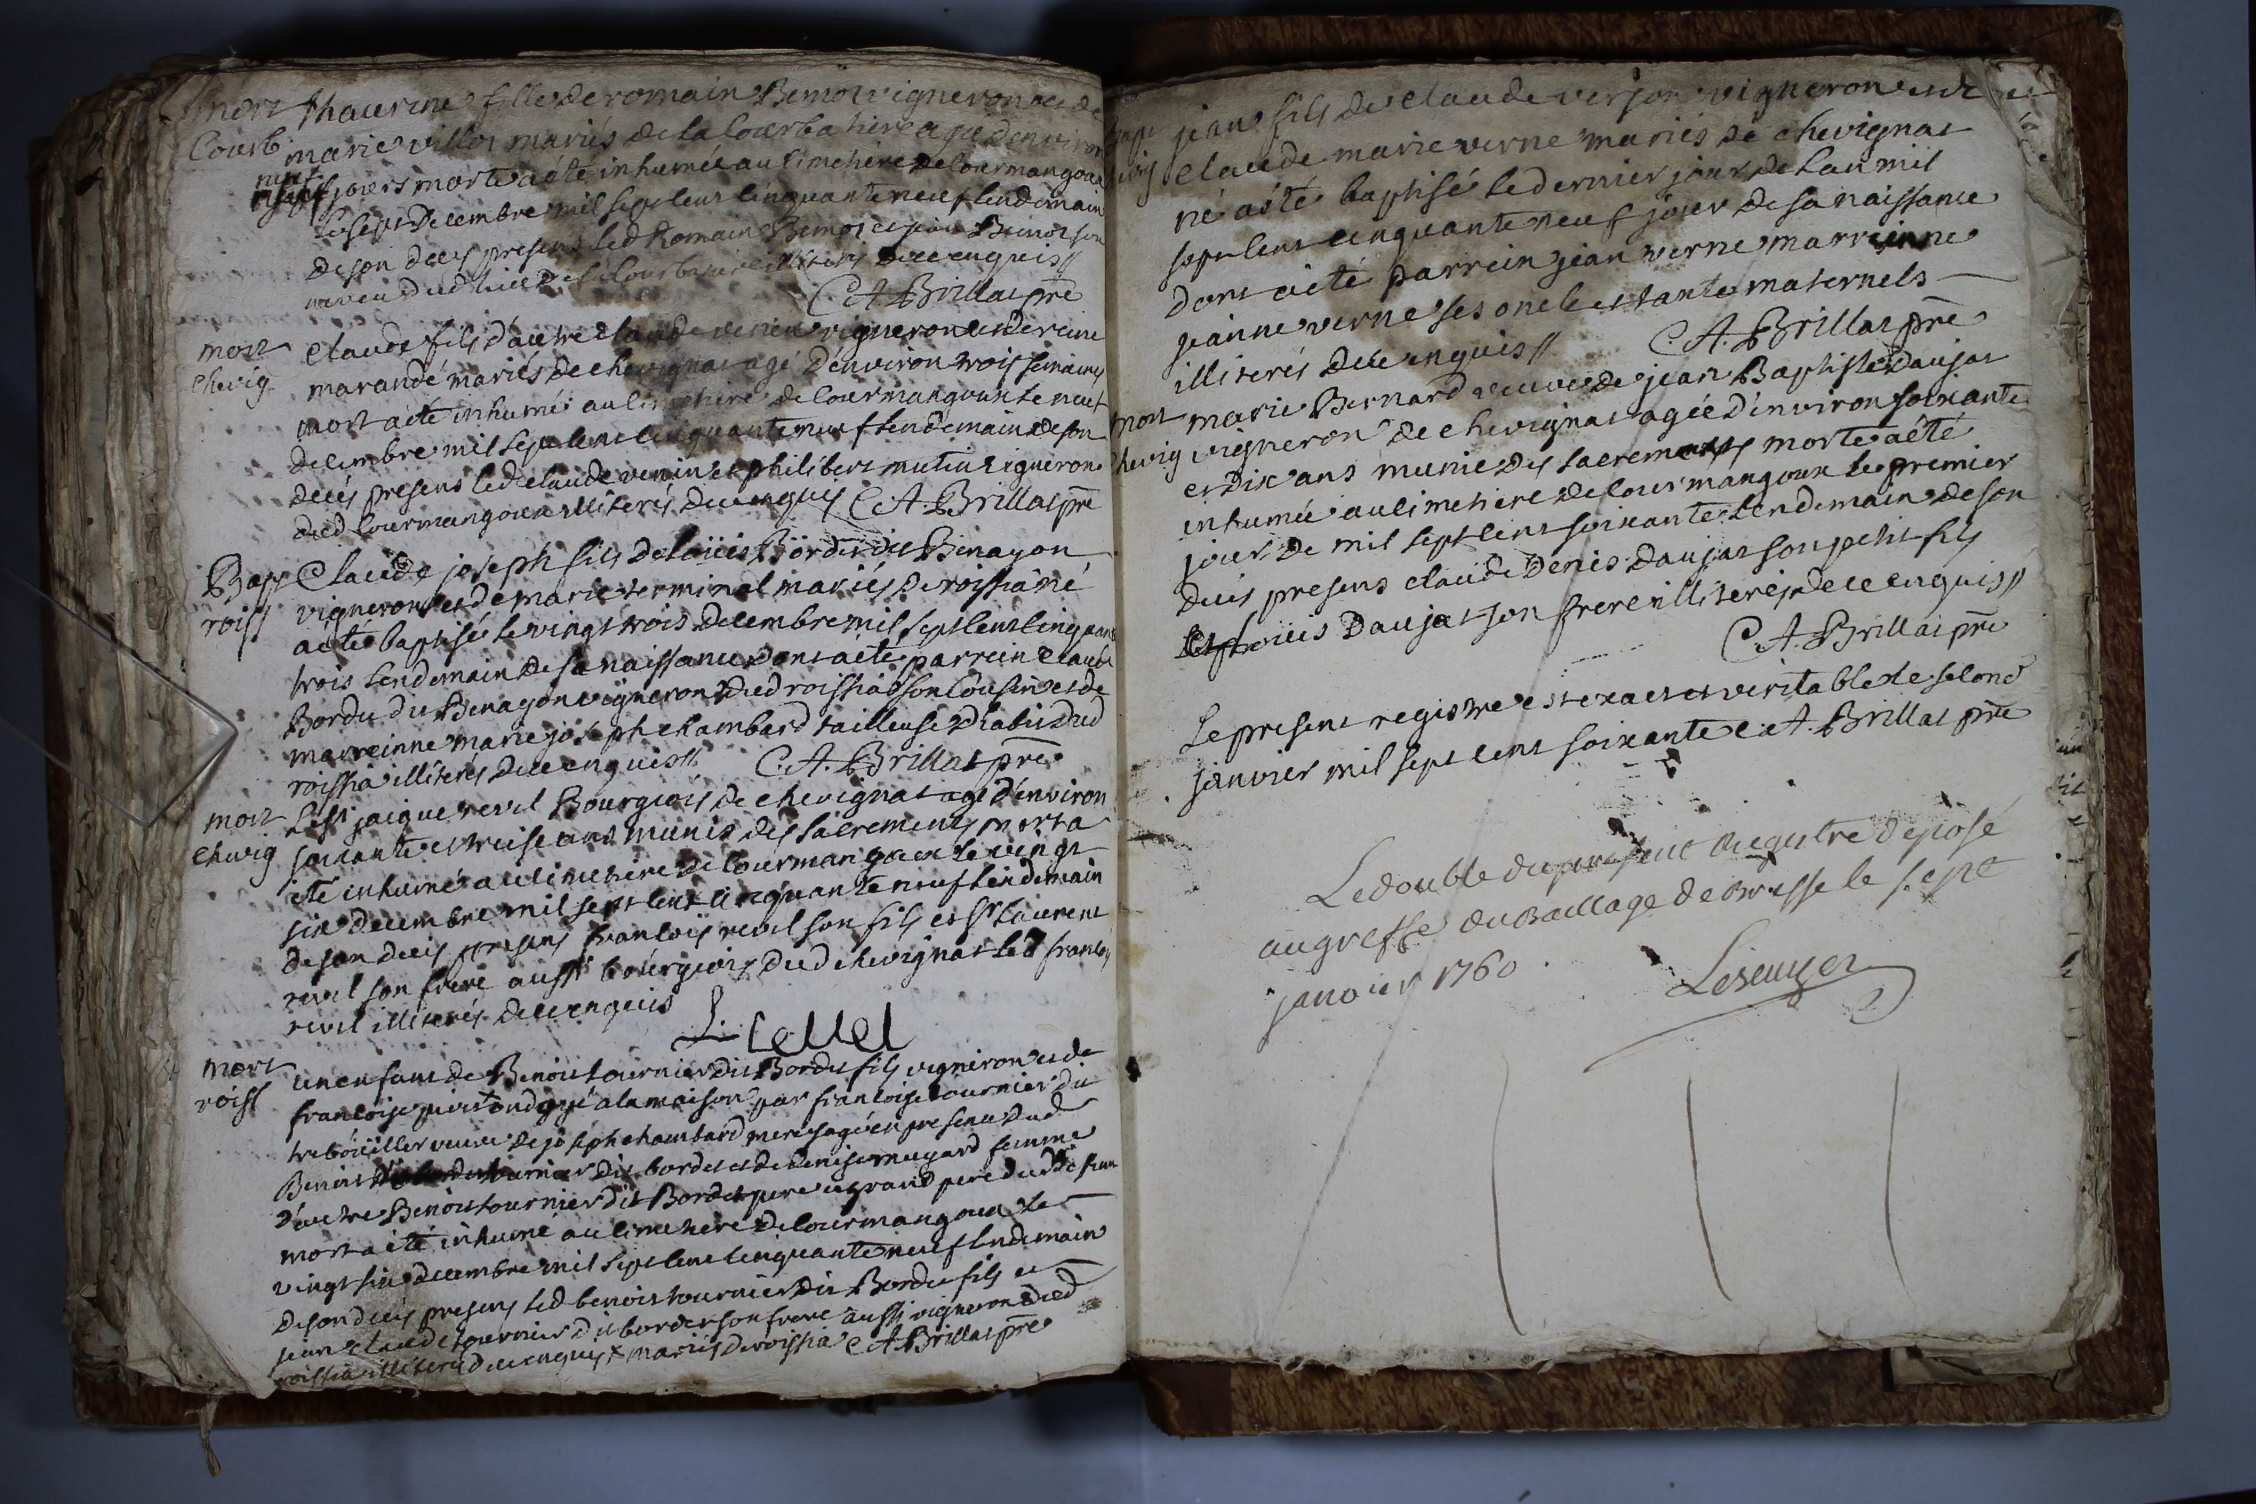 mort thaurine fille de romain Benoit vigneron et de
Courb marie villot mariés de la Courbatiere agé d'environ
neuf jours morte a été inhumée au cimetiere de Courmangoux
le sept decembre mil sept cent cinquante neuf lendemain
de son deces presens led Romain Benoit et jean Benoit son
neveu dud lieu de Courbatiere illiterés de ce enquis //
C A Brillat prê
mort claude fils d'autre claude venin vigneron et de reine
chevig marandé mariés de chevignat agé d'environ trois semaines
mort a été inhumé au cimetiere de Courmangoux le neuf
decembre mil sept cent cinquante neuf lendemain de son
decés presens led claude venin et philibert mutin vigneron
dud Courmangoux illiterés de ce enquis C A. Brillat prê
Bapt Claude joseph fils de loüis Bordet dit Benayon
roiss vigneron et de marie terminal mariés de roissia né
a été baptisé le vingt trois decembre mil sept cent cinquante
trois lendemain de sa naissance dont a été parrein claude
Bordet dit Benayon vigneron dud roissia son cousin et de
marreinne marie joseph chambard tailleuse d'habit dud
roissia illiterés de ce enquis // C. A. Brillat prê
mort Le Sr jaique revil Bourgeois de chevignat agé d'environ
chevig soixante et treise ans munis des sacremens mort a
été inhumé au cimetiere de Courmangoux le vingt
six decembre mil sept cent cinquante neuf lendemain
de son decés presens francois revil son fils et Sr laurent
revil son frere aussi bourgeois dud chevignat led francois
revil illiterés de ce enquis
L. revel
mort un enfant de Benoit tournier dit Bordet fils vigneron et de
roiss francoise ondoyé a la maison par francoise tournier dit
treboüiller veuve de joseph chambard mere sage en presence dud
Benoit tournier dit bordet et de denise mugard femme
d'autre Benoit tournier dit Bordet pere et grand pere dud défunt
mort a été inhumé au cimetiere de Courmangoux le
vingt six decembre mil sept cent cinquante neuf lendemain
de son decés presens led benoit tournier dit Bordet fils et
jean claude tournier dit bordet son frere aussi vigneron dud
roissia illiterés de ce enquis x mariés de roissia C A Brillat prê
Bapt jean fils de claude verjon vigneron et de
chevig claude marie verne mariés de chevignat
né a été baptisé le dernier jour de l'an mil
sept cent cinquante neuf jour de sa naissance
dont a été parrein jean verne marreinne
jeanne verne ses oncle et tante maternels
illiterés de ce enquis // C. A. Brillat prê
mort marie Bernard veuve de jean Baptiste Daujat
chevig vigneron de chevignat agée d'environ soixante
et dix ans munie des sacremens morte a été
inhumée au cimetiere de Courmangoux le premier
jour de mil sept cent soixante lendemain de son
decés presens claude Denis Daujat son petit fils
et loüis Daujat son frere illiterés de ce enquis //
C. A. Brillat prê
Le present registre est exact et veritable le second
janvier mil sept cent soixante C. A. Brillat prê
Le double du present Registre deposé
au greffe du Baillage de Bresse le sept
janvier 1760.